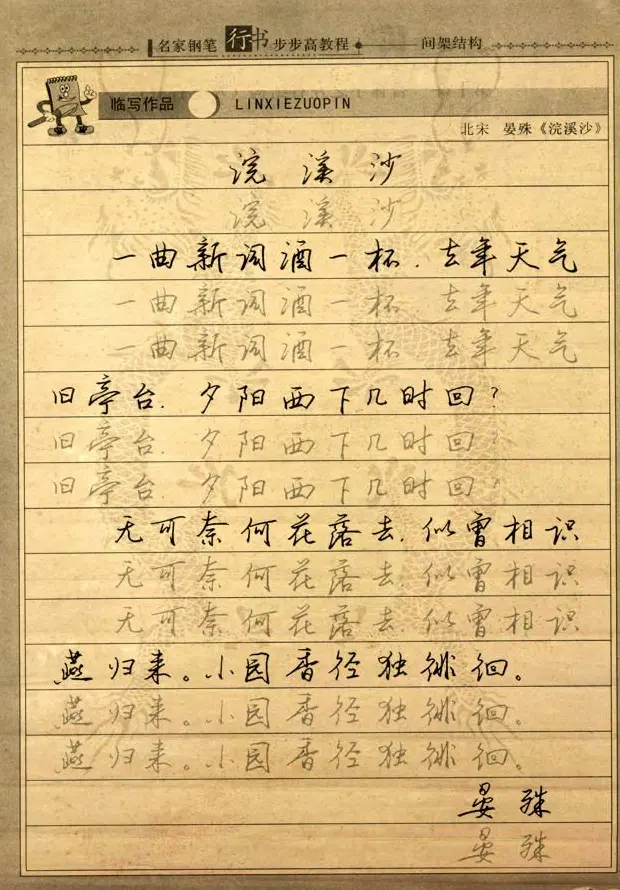 名家钢笔行书步步高教程 间架结构
临写作品 LINXIEZUOPIN
北宋 晏殊《浣溪沙》
浣溪沙
浣溪沙
一曲新词酒一杯.去年天气
一曲新词酒一杯.去年天气
一曲新词酒一杯.去年天气
旧亭台.夕阳西下几时回?
旧亭台.夕阳西下几时回?
旧亭台.夕阳西下几时回?
无可奈何花落去.似曾相识
无可奈何花落去.似曾相识
无可奈何花落去.似曾相识
燕归来。小园香径独徘徊。
燕归来。小园香径独徘徊。
燕归来。小园香径独徘徊。
晏殊
晏殊